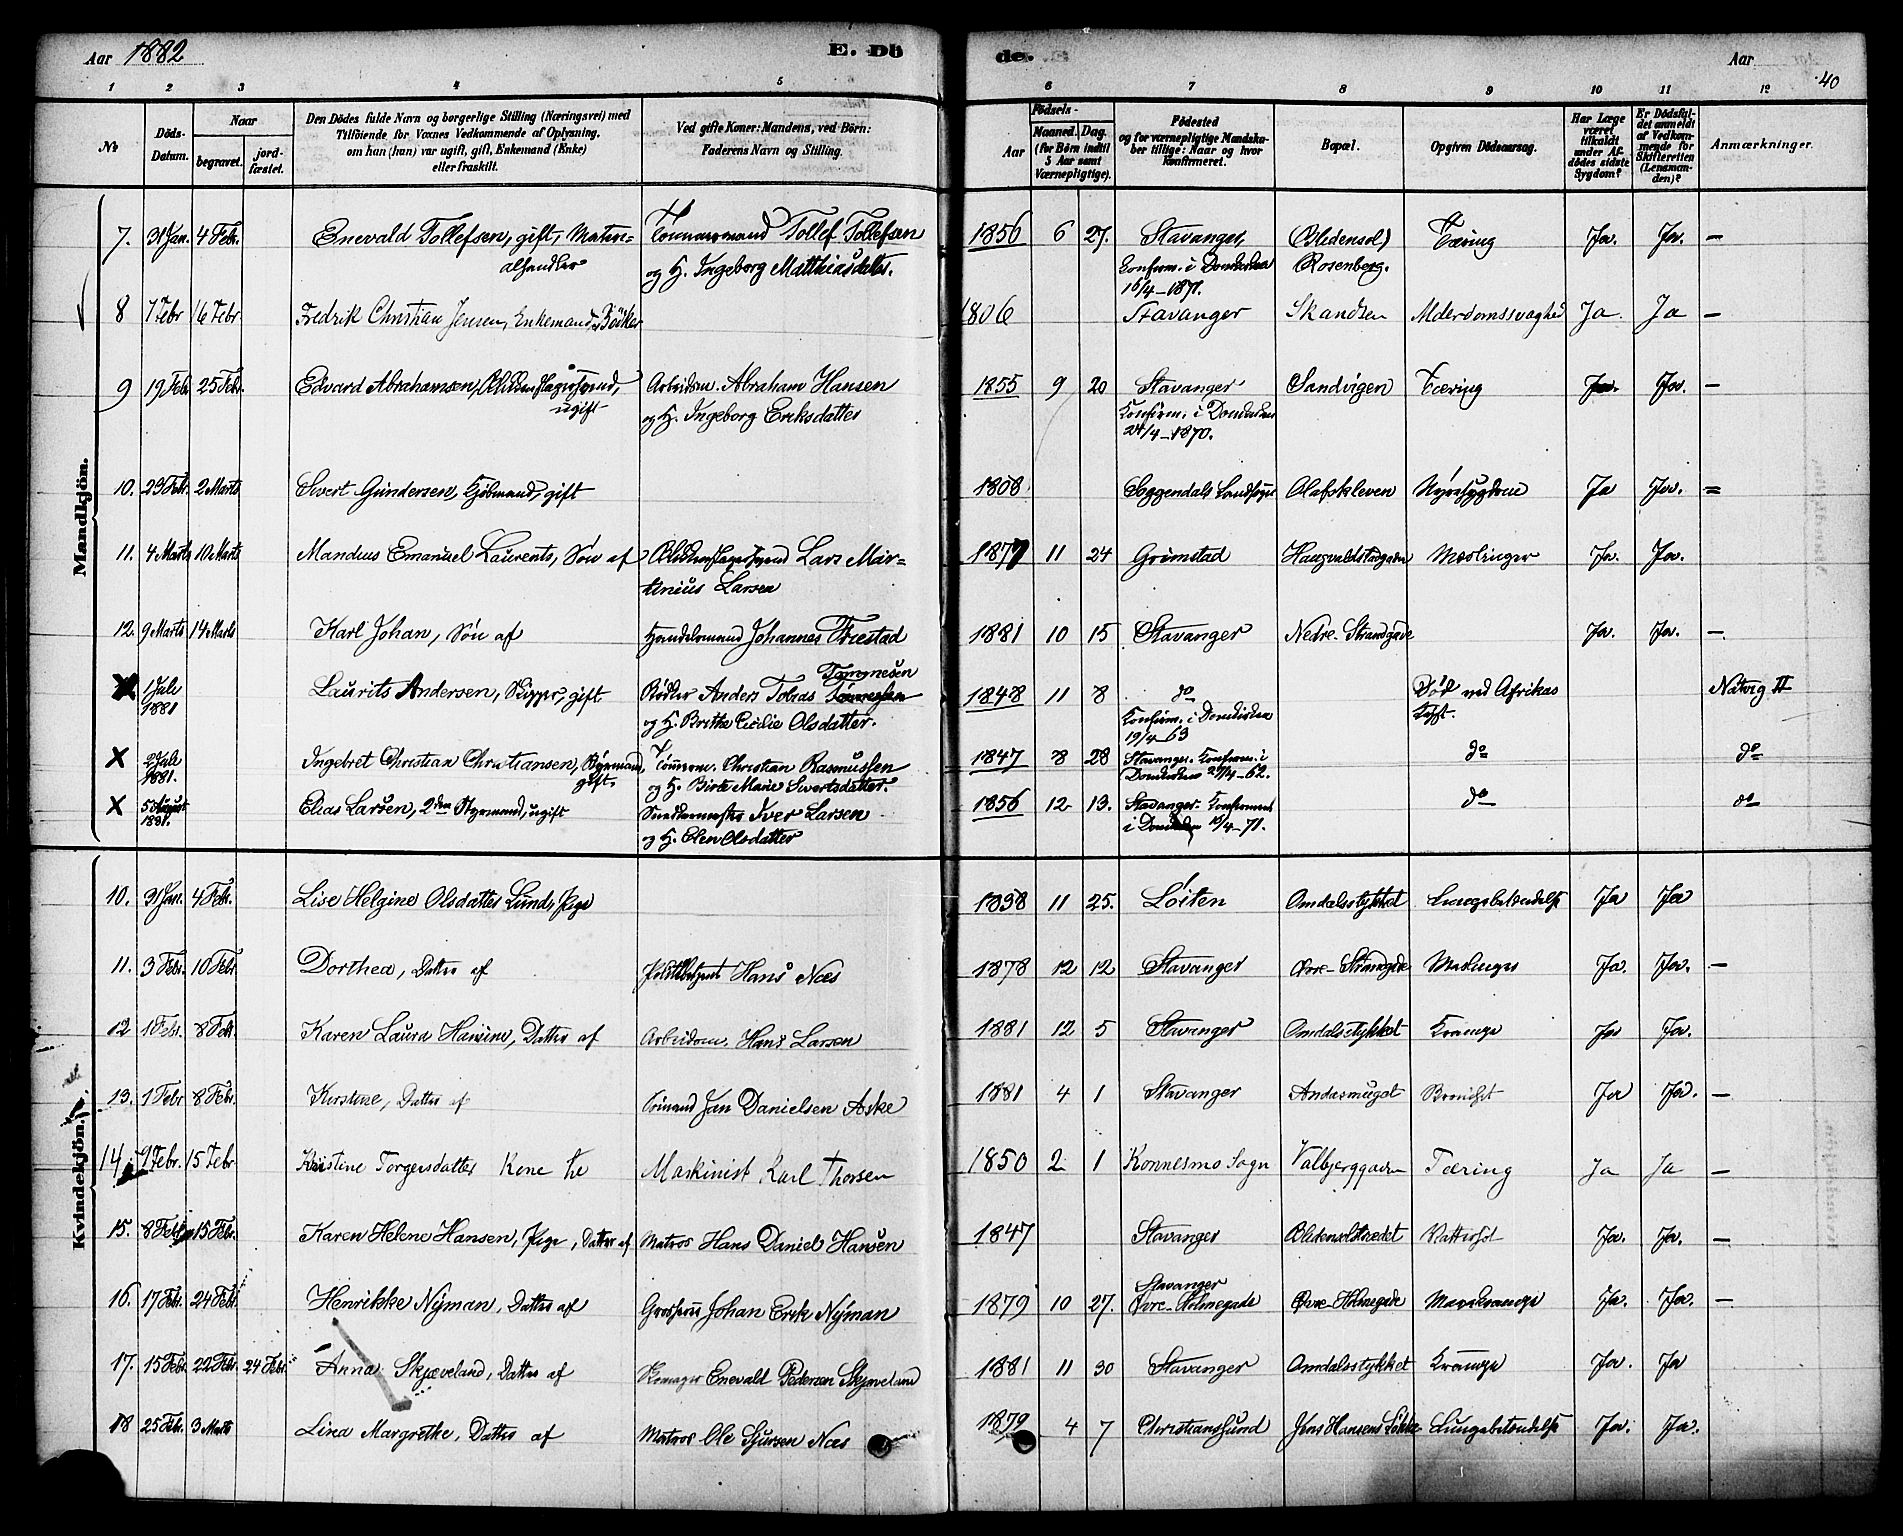 Aar 1882 E. Dö
de. Aar
40
1 2 3 4 5 6 7 8 9 10 11 12
No
Döds-Datum.
Naar
begravet. jord-fæstet.
Den Dödes fulde Navn og borgerlige Stilling (Næringsvei) med
Tilföiende for Voxnes Vedkommende af Oplysning,
om han (hun) var ugift, gift, Enkemand (Enke)
eller fraskilt.
Ved gifte Koner: Mandens, ved Börn:
Faderens Navn og Stilling.
Födsels-
Aar Maaned. Dag.
(for Börn indtil
5 Aar samt
Værnepligtige).
Födested
og for værnepligtige Mandskaber tillige: Naar og hvor
konfirmeret.
Bopæl.
Opgiven Dödsaarsag.
Har Læge
været
tilkaldt
under Afdödes sidste
Sygdom?
Er Dödsfaldet anmeldt
af Vedkommende for
Skifteretten
(Lensmanden)?
Anmærkninger.
Mandkjön.
7. 31 Jan. 4 Febr. Enevald Tollefsen, gift, Materialhandler Tømmermand Tollef Tollefsen 1856 6 27. Stavanger, (Bledensol) Tæring Ja. Ja. —
og H. Ingeborg Matthiasdatter. Konfirm. i Domkirken Rosenberg.
16/4-1871.
8 7 Febr 16 Febr Fredrik Christian Jensen, Enkemand, Bödker 1806 Stavanger Skandsen Alderdomssvaghed Ja Ja —
9 19 Febr 25 Febr. Edvard Abrahamsen, ugift Arbeidsm. Abraham Hansen 1855 9 20 Stavanger Sandvigen Tæring Ja. Ja. —
og H. Ingeborg Eriksdatter Konfirm. i Domkirken
24/4-1870.
10. 23 Febr. 2 Marts Sivert Gundersen, Kjöbmand, gift 1808 Soggendals Landsogn Olafskleven Nyresygdom Ja Ja. =
11. 4 Marts 10 Marts Mandius Emanuel Laurents, Sön af Lars Mar- 1877 11 24 Grimstad Mæslinger Ja. Ja.
tinius Larsen
12. 9 Marts 14 Marts Karl Johan, Sön af Handelsmand Johannes Træstad 1881 10 15 Stavanger Nedre Strandgade Ja. Ja. —
1 Juli 1881 Laurits Andersen, Skipper, gift Bödker Anders Tobias Tönnesen 1848 11 8 do Död ved Afrikas Kyst. Natvig II
og H. Brithe Cecilie Olsdatter. Konfirm. i Domkirken
19/4-63
X 2 Juli 1881. Ingebret Christian Christiansen, Styrmand, gift Tömmerm. Christian Rasmussen 1847 8 28 Stavanger. Konfirm. i do do
og H. Birte Marie Sivertsdatter. Domkirken 27/4-62.
X 5 August 1881. Elias Larsen, 2den Styrmand, ugift Iver Larsen 1856 12 13. Stavanger. Konfirmeret do do
og H. Elen Olsdatter i Domkirken 16/4-71.
Kvindekjön.
10. 31 Jan. 4 Febr. Lise Helgine Olsdatter Lund, Pige 1838 11 25. Löiten Omdalsstykket Lungebetændelse Ja Ja
11. 3 Febr. 10 Febr Dorthea, Datter af Politibetjent Hans Næs 1878 12 12 Stavanger Øvre Strandgade Mæslinger Ja. Ja. —
12 1 Febr. 8 Febr Karen Laura Hansine, Datter af Arbeidsm. Hans Larsen 1881 12 5 Stavanger Omdalsstykket Krampe Ja Ja. —
13. 1 Febr 8 Febr. Kirstine, Datter af Jan Danielsen Aske 1881 4 1 Stavanger Andasmuget Bronchit Ja Ja. —
14. 9 Febr. 15 Febr Kristine Torgersdatter Kone til Maskinist Karl Thorsen 1850 2 1 Konnesmo Sogn Valbjerggaden Tæring Ja Ja —
15. 8 Febr 15 Febr. Karen Helene Hansen, Pige, Datter af Matros Hans Daniel Hansen 1847 Stavanger Bledensolstrædet Vattersot Ja. Ja. —
16. 17 Febr. 24 Febr. Henrikke Nyman, Datter af Johan Erik Nyman 1879 10 27. Stavanger Øvre Holmegade Øvre Holmegade Ja. Ja. —
17. 15 Febr. 22 Febr 24 Febr. Anna Skjæveland, Datter af Enevald Pedersen Skjæveland 1881 11 30 Stavanger Omdalsstykket Krampe Ja. Ja
18 25 Febr. 3 Marts Lina Margrethe, Datter af Matros Ole Sjursen Næs 1879 4 7 Christianssund Jens Hansens Løkke Lungebetændelse Ja. Ja.